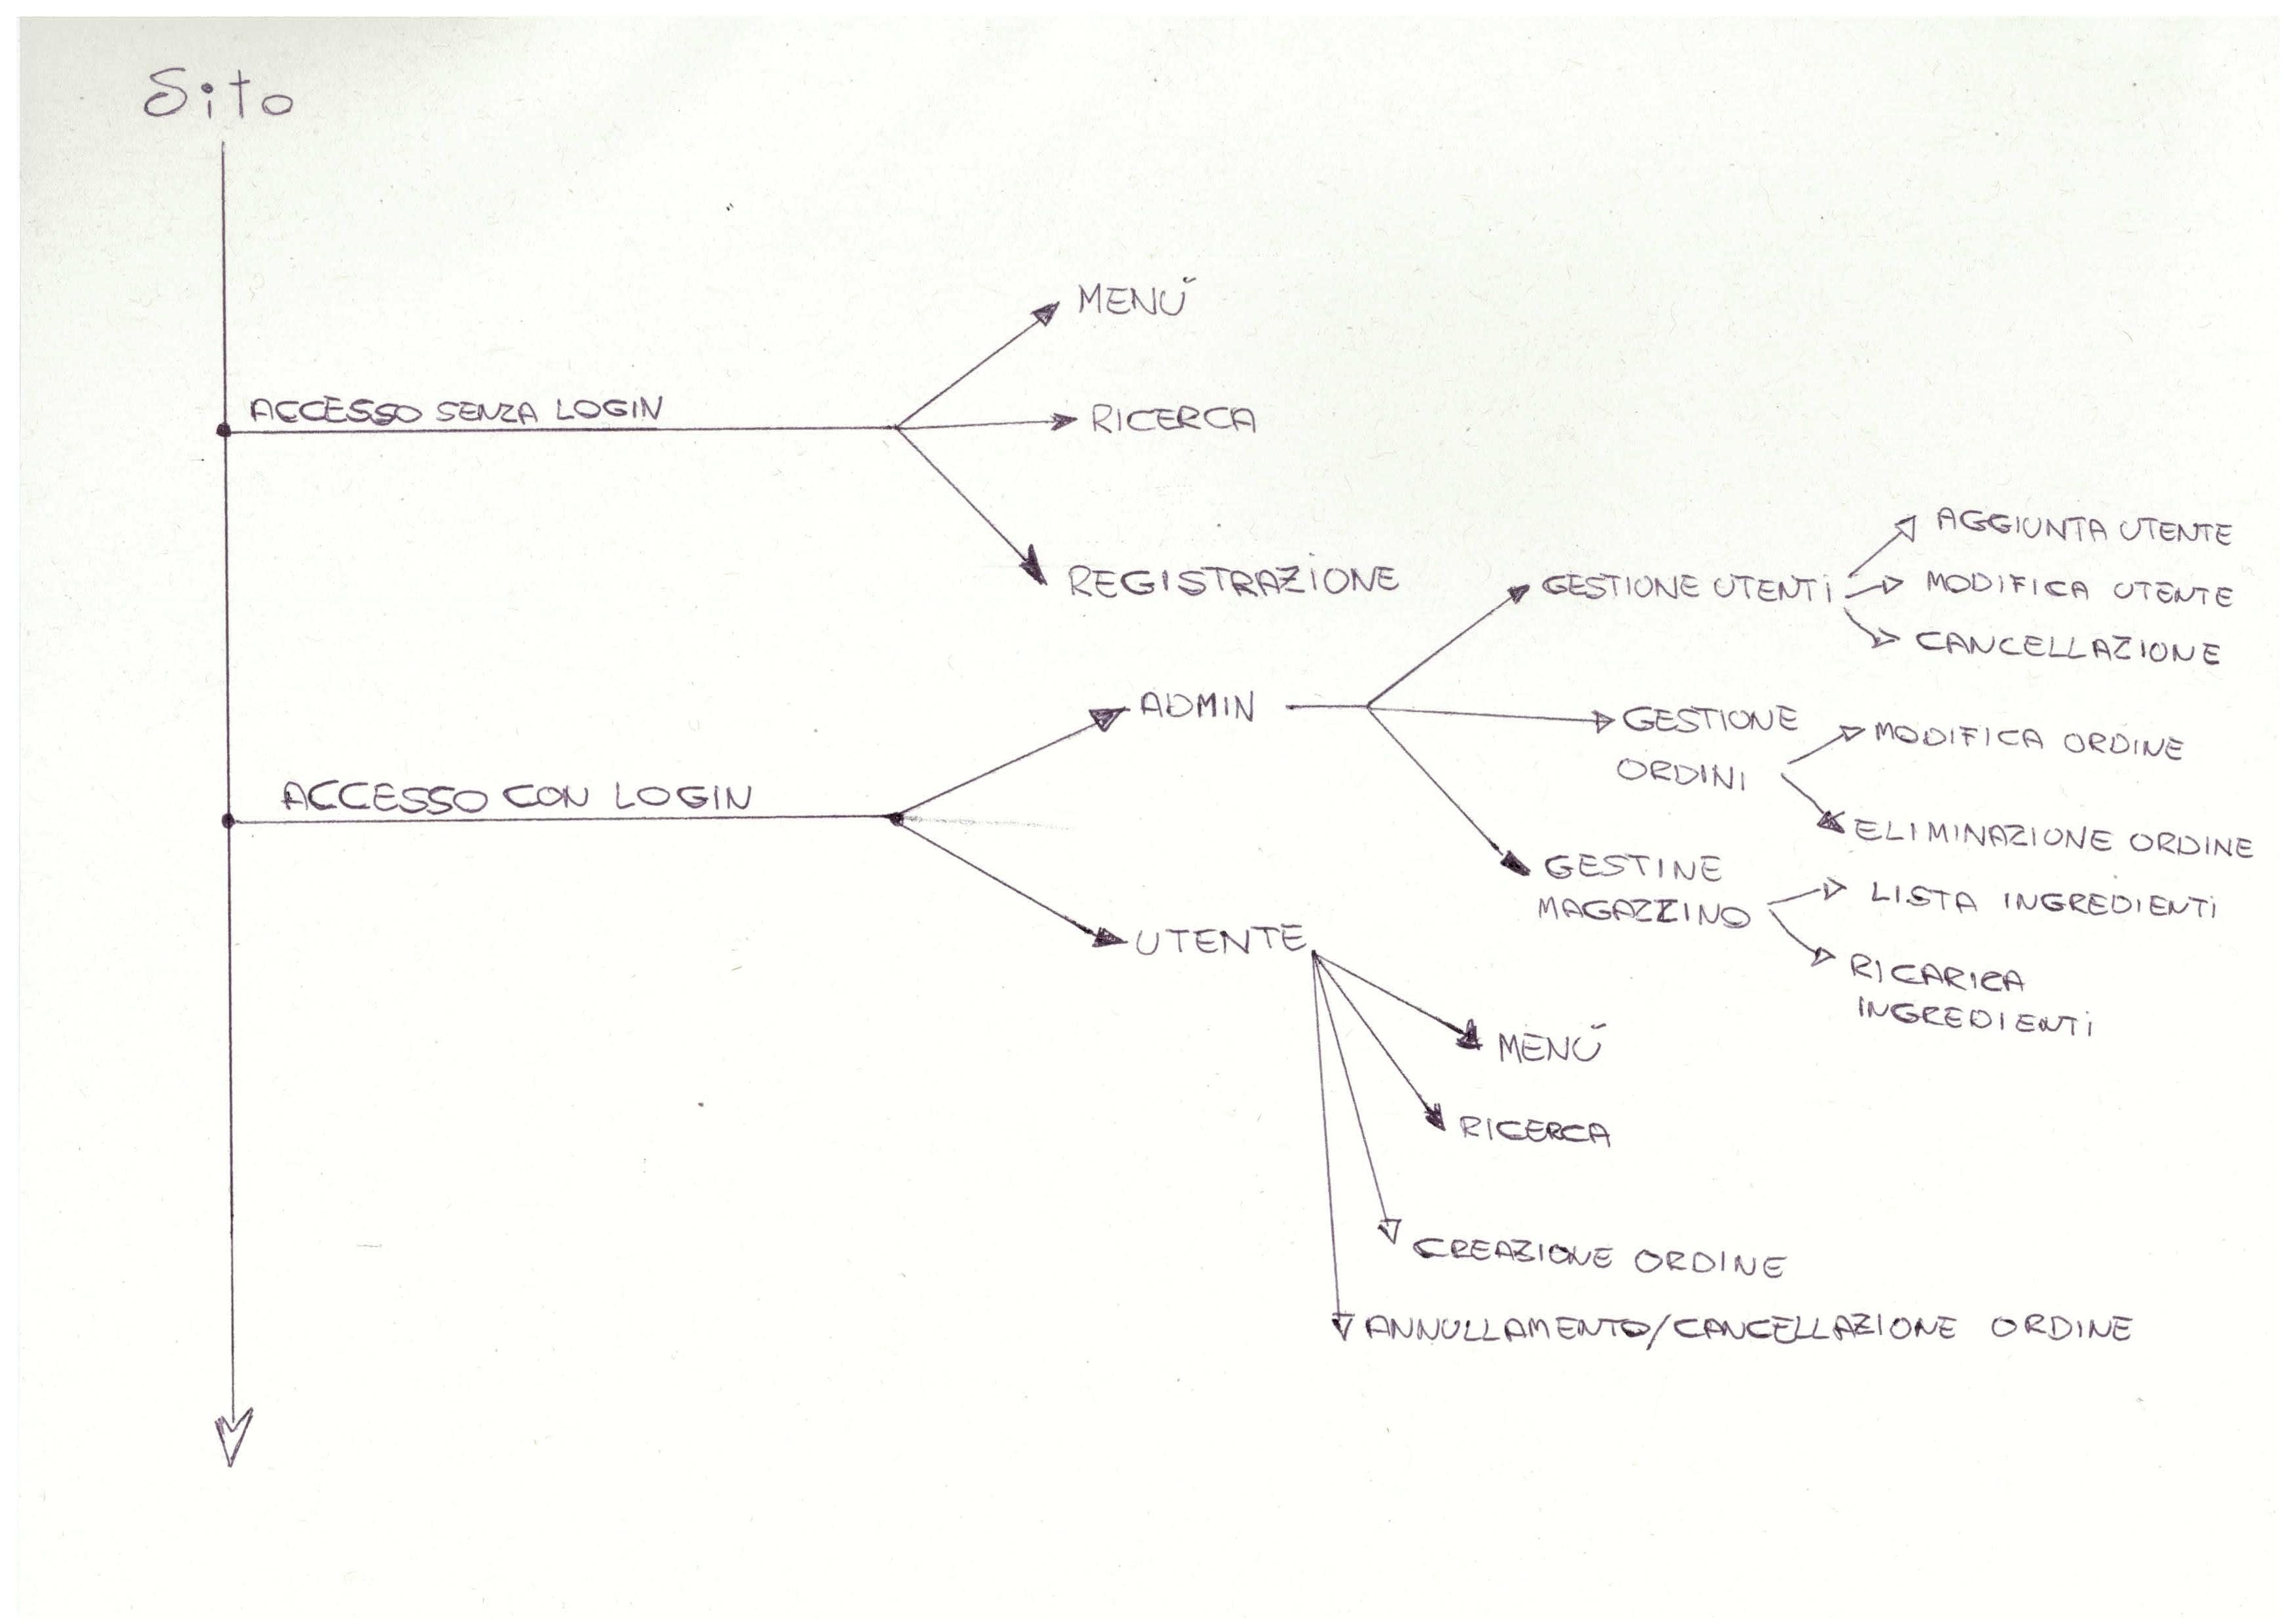 Sito
MENÙ
ACCESSO SENZA LOGIN
RICERCA
REGISTRAZIONE
GESTIONE UTENTI
AGGIUNTA UTENTE
MODIFICA UTENTE
CANCELLAZIONE
ADMIN
GESTIONE
ORDINI
MODIFICA ORDINE
ELIMINAZIONE ORDINE
ACCESSO CON LOGIN
GESTINE
MAGAZZINO
LISTA INGREDIENTI
RICARICA
INGREDIENTI
UTENTE
MENÙ
RICERCA
CREAZIONE ORDINE
ANNULLAMENTO/CANCELLAZIONE ORDINE